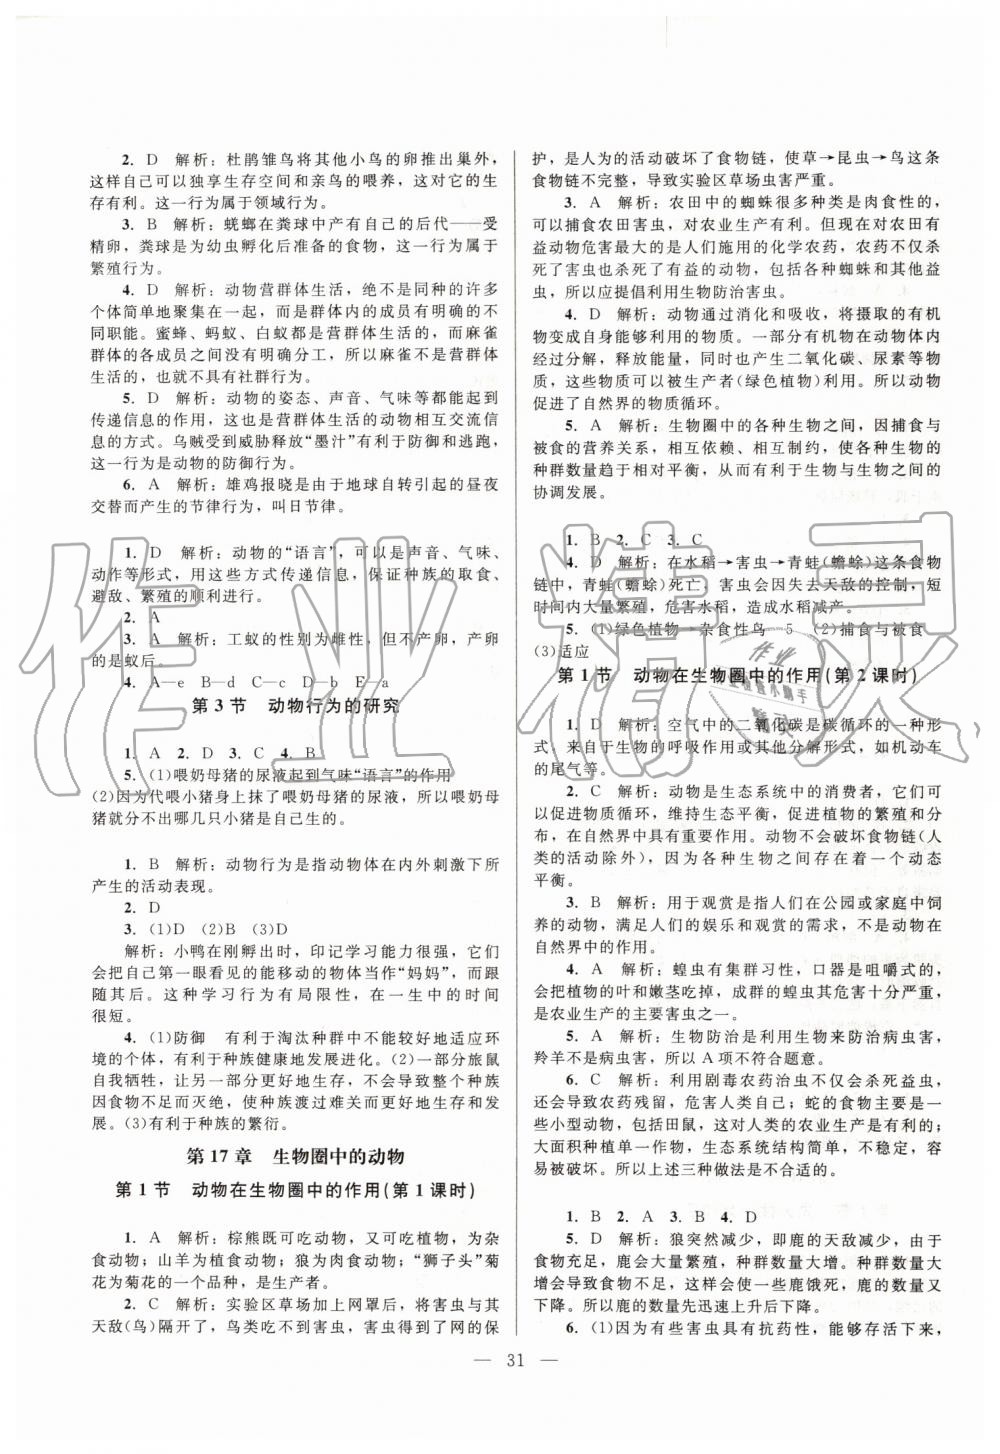 2. D　解析：杜鹃雏鸟将其他小鸟的卵推出巢外，
这样自己可以独享生存空间和亲鸟的喂养，这对它的生
存有利。这一行为属于领域行为。
3. B　解析：蜣螂在粪球中产有自己的后代——受
精卵，粪球是为幼虫孵化后准备的食物，这一行为属于
繁殖行为。
4. D　解析：动物营群体生活，绝不是同种的许多
个体简单地聚集在一起，而是群体内的成员有明确的不
同职能。蜜蜂、蚂蚁、白蚁都是营群体生活的，而麻雀
群体的各成员之间没有明确分工，所以麻雀不是营群体
生活的，也就不具有社群行为。
5. D　解析：动物的姿态、声音、气味等都能起到
传递信息的作用，这也是营群体生活的动物相互交流信
息的方式。乌贼受到威胁释放“墨汁”有利于防御和逃跑，
这一行为是动物的防御行为。
6. A　解析：雄鸡报晓是由于地球自转引起的昼夜
交替而产生的节律行为，叫日节律。
1. D　解析：动物的“语言”，可以是声音、气味、
动作等形式，用这些方式传递信息，保证种族的取食、
避敌、繁殖的顺利进行。
2. A
3. A　解析：工蚁的性别为雌性，但不产卵，产卵
的是蚁后。
4. A—e　B—d　C—c　D—b　E—a
第 3 节　动物行为的研究
1. A　2. D　3. C　4. B
5. (1)喂奶母猪的尿液起到气味“语言”的作用
(2)因为代喂小猪身上抹了喂奶母猪的尿液，所以喂奶母
猪分不出哪几只小猪是自己生的。
1. B　解析：动物行为是指动物体在内外刺激下所
产生的活动表现。
2. D
3. (1)D　(2)B　(3)D
解析：小鸭在刚孵出时，印记学习能力很强，它们
会把自己第一眼看见的能移动的物体当作“妈妈”，而跟
随其后。这种学习行为有局限性，在一生中的时间
很短。
4. (1)防御　有利于淘汰种群中不能较好地适应环
境的个体，有利于种族健康地发展进化。(2)一部分旅鼠
自我牺牲，让另一部分更好地生存，不会导致整个种族
因食物不足而灭绝，使种族渡过难关而更好地生存和发
展。(3)有利于种族的繁衍。
第 17 章　生物圈中的动物
第 1 节　动物在生物圈中的作用(第 1 课时)
1. A　解析：棕熊既可吃动物，又可吃植物，为杂
食动物；山羊为植食动物；狼为肉食动物；“狮子头”菊
花为菊花的一个品种，是生产者。
2. C　解析：实验区草场加上网罩后，将害虫与其
天敌(鸟)隔开了，鸟类吃不到害虫，害虫得到了网的保
护，是人为的活动破坏了食物链，使草→昆虫→鸟这条
食物链不完整，导致实验区草场虫害严重。
3. A　解析：农田中的蜘蛛很多种类是肉食性的，
可以捕食农田害虫，对农业生产有利。但现在对农田有
益动物危害最大的是人们施用的化学农药，农药不仅杀
死了害虫也杀死了有益的动物，包括各种蜘蛛和其他益
虫，所以应提倡利用生物防治害虫。
4. D　解析：动物通过消化和吸收，将摄取的有机
物变成自身能够利用的物质。一部分有机物在动物体内
经过分解，释放能量，同时也产生二氧化碳、尿素等物
质，这些物质可以被生产者(绿色植物)利用。所以动物
促进了自然界的物质循环。
5. A　解析：生物圈中的各种生物之间，因捕食与
被食的营养关系，相互依赖、相互制约，使各种生物的
种群数量趋于相对平衡，从而有利于生物与生物之间的
协调发展。
1. B　2. C　3. C
4. D　解析：在水稻→害虫→青蛙(蟾蜍)这条食物
链中，青蛙(蟾蜍)死亡，害虫会因失去天敌的控制，短
时间内大量繁殖，危害水稻，造成水稻减产。
5. (1)绿色植物→杂食性鸟　5　(2)捕食与被食
(3)适应
第 1 节　动物在生物圈中的作用(第 2 课时)
1. D　解析：空气中的二氧化碳是碳循环的一种形
式，来自于生物的呼吸作用或其他分解形式，如机动车
的尾气等。
2. C　解析：动物是生态系统中的消费者，它们可
以促进物质循环，维持生态平衡，促进植物的繁殖和分
布，在自然界中具有重要作用。动物不会破坏食物链(人
类的活动除外)，因为各种生物之间存在着一个动态
平衡。
3. B　解析：用于观赏是指人们在公园或家庭中饲
养的动物，满足人们的娱乐和观赏的需求，不是动物在
自然界中的作用。
4. A　解析：蝗虫有集群习性，口器是咀嚼式的，
能把植物的叶和嫩茎吃掉，成群的蝗虫其危害十分严重，
是农业生产的主要害虫之一。
5. A　解析：生物防治是利用生物来防治病虫害，
羚羊不是病虫害，所以 A 项不符合题意。
6. C　解析：利用剧毒农药治虫不仅会杀死益虫，
还会导致农药残留，危害人类自己；蛇的食物主要是一
些小型动物，包括田鼠，这对人类的农业生产是有利的；
大面积种植单一作物，生态系统结构简单，生物种类少，容
易被破坏。所以上述三种做法是不合适的。
1. B　2. A　3. B　4. D
5. D　解析：狼突然减少，即鹿的天敌减少，由于
食物充足，鹿会大量繁殖，种群数量大增。种群数量大
增会导致食物不足，这样会使一些鹿饿死，鹿的数量又
下降。所以鹿的数量先迅速上升后下降。
6. (1)因为有些害虫具有抗药性，能够存活下来，
— 31 —
作业精灵